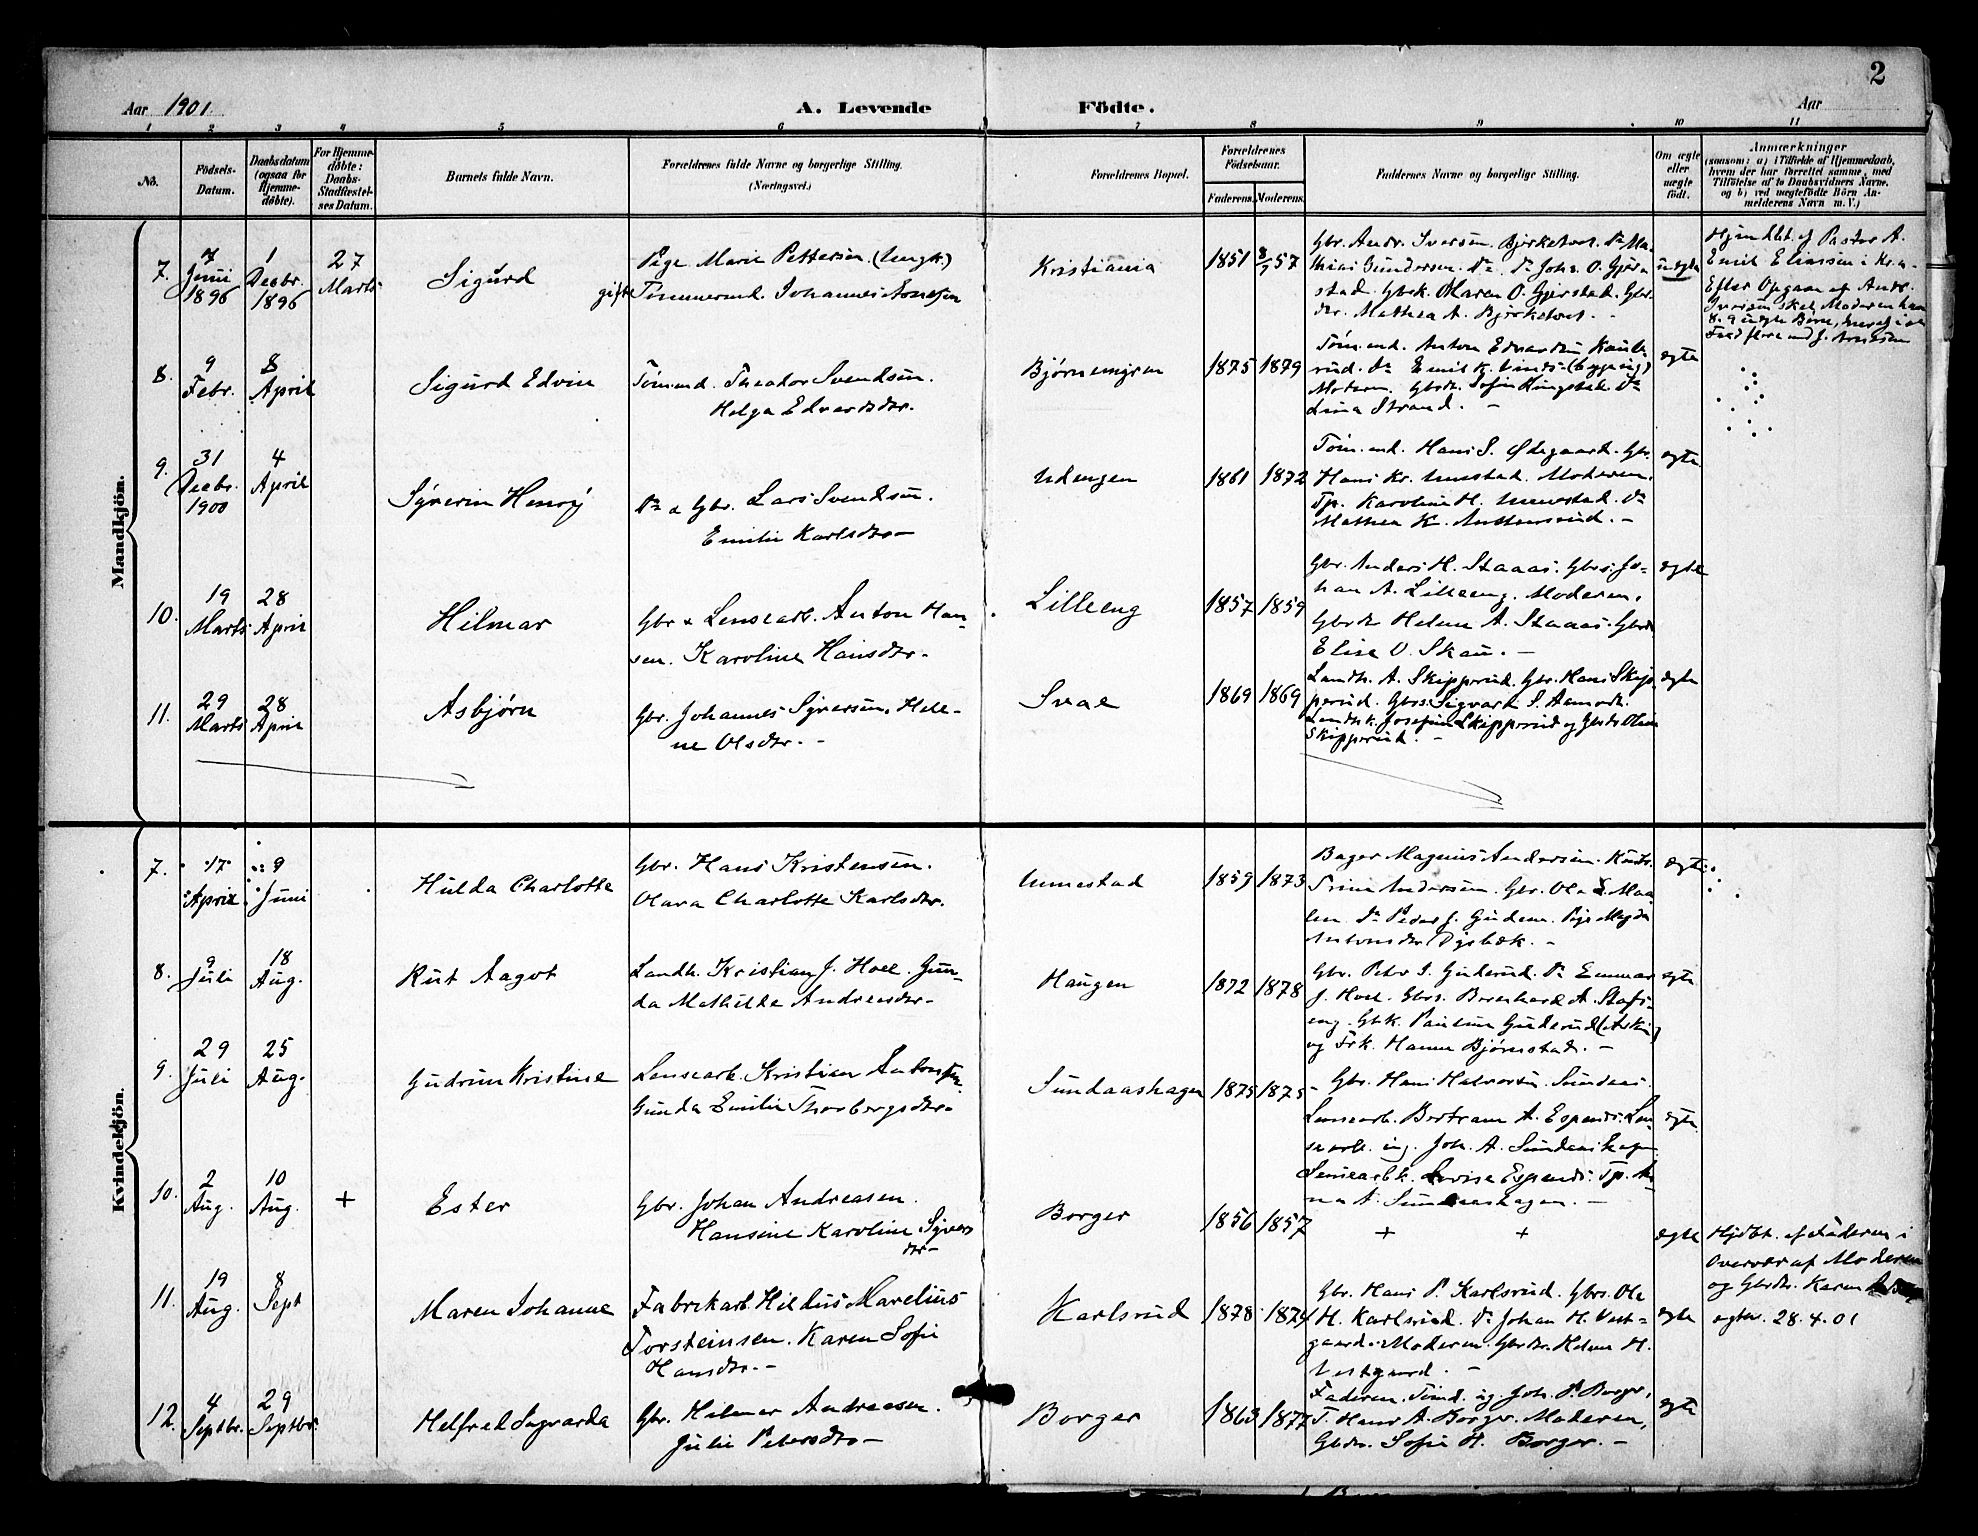 2
Aar 1901.
A. Levende Födte.
Aar
1 2 3 4 5 6 7 8 9 10 11
No.
Födsels-Datum.
Daabsdatum (ogsaa for Hjemme-döbte).
For Hjemme-döbte: Daabs-Stadfæstel-ses Datum.
Barnets fulde Navn.
Forældrenes fulde Navne og borgerlige Stilling. (Næringsvei.)
Forældrenes Bopæl.
Forældrenes Födselsaar.
Faderens. Moderens.
Faddernes Navne og borgerlige Stilling.
Om ægte eller uægte födt.
Anmærkninger
(saasom: a) i Tilfælde af Hjemmedaab,
hvem der har forrettet samme, med
Tilföielse af to Daabsvidners Navne,
og b) ved uægtefödte Börn An-
melderens Navn m. V.)
Mandkjön.
7. 7 Juni 1896 1 Decbr. 1896 27 Marts
Sigurd
Pige Marie Pettersen (Ungk.)
gift Tømmermd. Johannes Arnesen
Kristiania
1851 57
Gbr. Andr. Iversen Bjerketvet. Do Ma-
thias Gundersen. Do. Do Johs. O. Gjer-
stad. Gbrk. Maren O. Gjerstad. Gbr.
dr. Mathea A. Bjerketvet. -
uægte
Hjemdbt. af Pastor A.
Emil Eliassen i Kr.a.
Efter Opgave af Andr.
Iversen skal Moderen have
8-9 uægte Børn,
8. 9 Febr. 8 April
Sigurd Edvin
Tømmd. Theodor Svendsen.
Helga Edvardsdtr.
Bjørnemyren
1875 1879
Tømmd. Anton Edvardsen
rud. Do Emil K.
Moderen. Gbrdr. Sofie Do
Lina Strand. -
ægte
9. 31 Decbr. 1900 4 April
Syverin Henry
Do & Gbr. Lars Svendsen.
Emilie Karlsdtr -
Udengen
1861 1872
Tømmd. Hans S. Ødegaard. Gbr.
Hans Kr. Unnestad. Moderen.
Tp. Karoline H. Unnestad. Do
Mathea K. -
ægte
10. 19 Marts 28 April
Hilmar
Gbr & Lensearb. Anton Han-
sen. Karoline Hansdtr.
Lilleeng
1857 1859
Gbr. Anders H. Staaas. Gbrs. Jo-
han A. Lilleeng. Moderen.
Gbrdr Helene A. Staaas. Gbrdr
Elise O. Skau. -
ægte
11. 29 Marts 28 April
Asbjørn
Gbr. Johannes Syversen. Hele-
ne Olsdtr. -
Svae
1869 1869
Landh. A. Skipperud. Gbr. Hans Skip-
perud. Gbrs. Sigvart S. Aamodt.
Landhk. Josefine Skipperud og Gbrdr Oline
Skipperud. -
ægte
Kvindekjön.
7. 17 April 9 Juni
Hulda Charlotte
Gbr. Hans Kristensen.
Olava Charlotte Karlsdtr.
Unnestad
1859 1873
Bager Magnus Andersen.
Trine Andersen. Gbr. Ola E. Moa-
Do Peder J. Pige Magda
Antonsdtr -
ægte
8. 9 Juli 18 Aug.
Rut Aagot
Landh. Kristian J. Hoel. Gun-
da Mathilde Andreasdtr -
Haugen
1872 1878
Gbr. Peter I. Guderud. Do Emmar
J. Hoel. Gbrs. Bernhard A.
eng. Gbk. Pauline Guderud
og Frk. Hanna Bjørnstad. -
ægte
9. 29 Juli 25 Aug.
Gudrun Kristine
Lensearb. Kristian Antonsen
Gunda Emilie Thorbergsdtr -
Sundaashagen
1875 1875
Gbr. Hans Halvorsen. Sundaas.
Lensearb. Bertram A. Espens. Len-
searb. ug. Joh. A. Sundaashagen
Lensearbk. Lovise Espends. Tp. An-
na A. Sundaashagen. -
ægte
10. 2 Aug. 10 Aug. +
Ester
Gbr. Johan Andreasen.
Hansine Karoline Syvers
dtr -
Borger
1856 1857
+ +
ægte
Hjdbt. af Faderen i
Overvær af Moderen
og Gbrdr. Karen
28.4.01
11. 19 Aug. 8 Sept
Maren Johanne
Fabrikarb. Hildus Marelius
Torsteinsen. Karen Sofie
Hansdtr. -
Karlsrud
1878 1874
Gbr. Hans P. Karlsrud. Gbrs. Ole
H. Karlsrud. Do Johan H. Vest-
gaard. Moderen. Gbrdr. Helene H.
Vestgaard. -
ægte
12. 4 Septbr. 29 Septbr.
Helfred Ingvarda
Gbr. Hilmar Andreasen.
Julie Petersdtr -
Borger
1863 1877
Faderen. Tømd. ug. Joh. P. Borger.
T. Hans A. Borger. Moderen,
Gbrdr. Sofie H. Borger. -
ægte